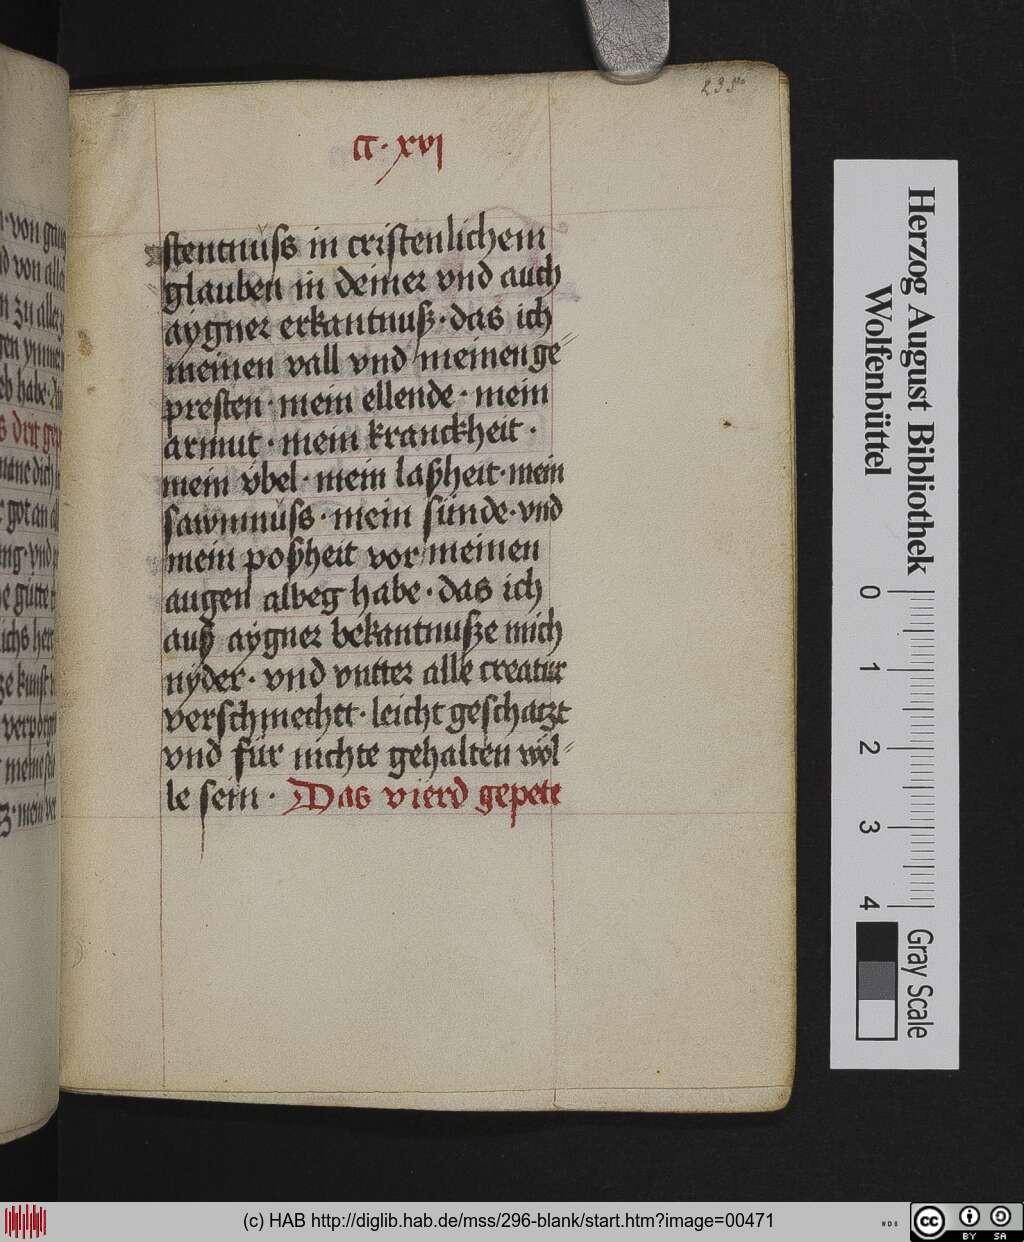 235
cc·xvj
stentnüss in cristenlichem
glauben in deiner vnd auch
aygner erkantnuß·das ich
meinen vall vnd meinen ge⸗
presten·mein ellende·mein
armut·mein kranckheit·
mein vbel·mein laßheit·mein
sawmnüss·mein sünde·vnd
mein poßheit vor meinen
augen albeg habe·das ich
auß aygner bekantnusze mich
nyder·vnd vntter alle creatur
verschmechtt·leicht geschatzt
vnd für nichte gehalten wöl⸗
le sein·Das vierd gepete
Herzog August Bibliothek
Wolfenbüttel
0 1 2 3 4
Gray Scale
(c) HAB http://diglib.hab.de/mss/296-blank/start.htm?image=00471
cc BY SA